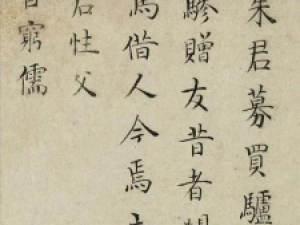 朱君募買驢
驂贈友昔者
馬借人今焉
君性父
窮儒